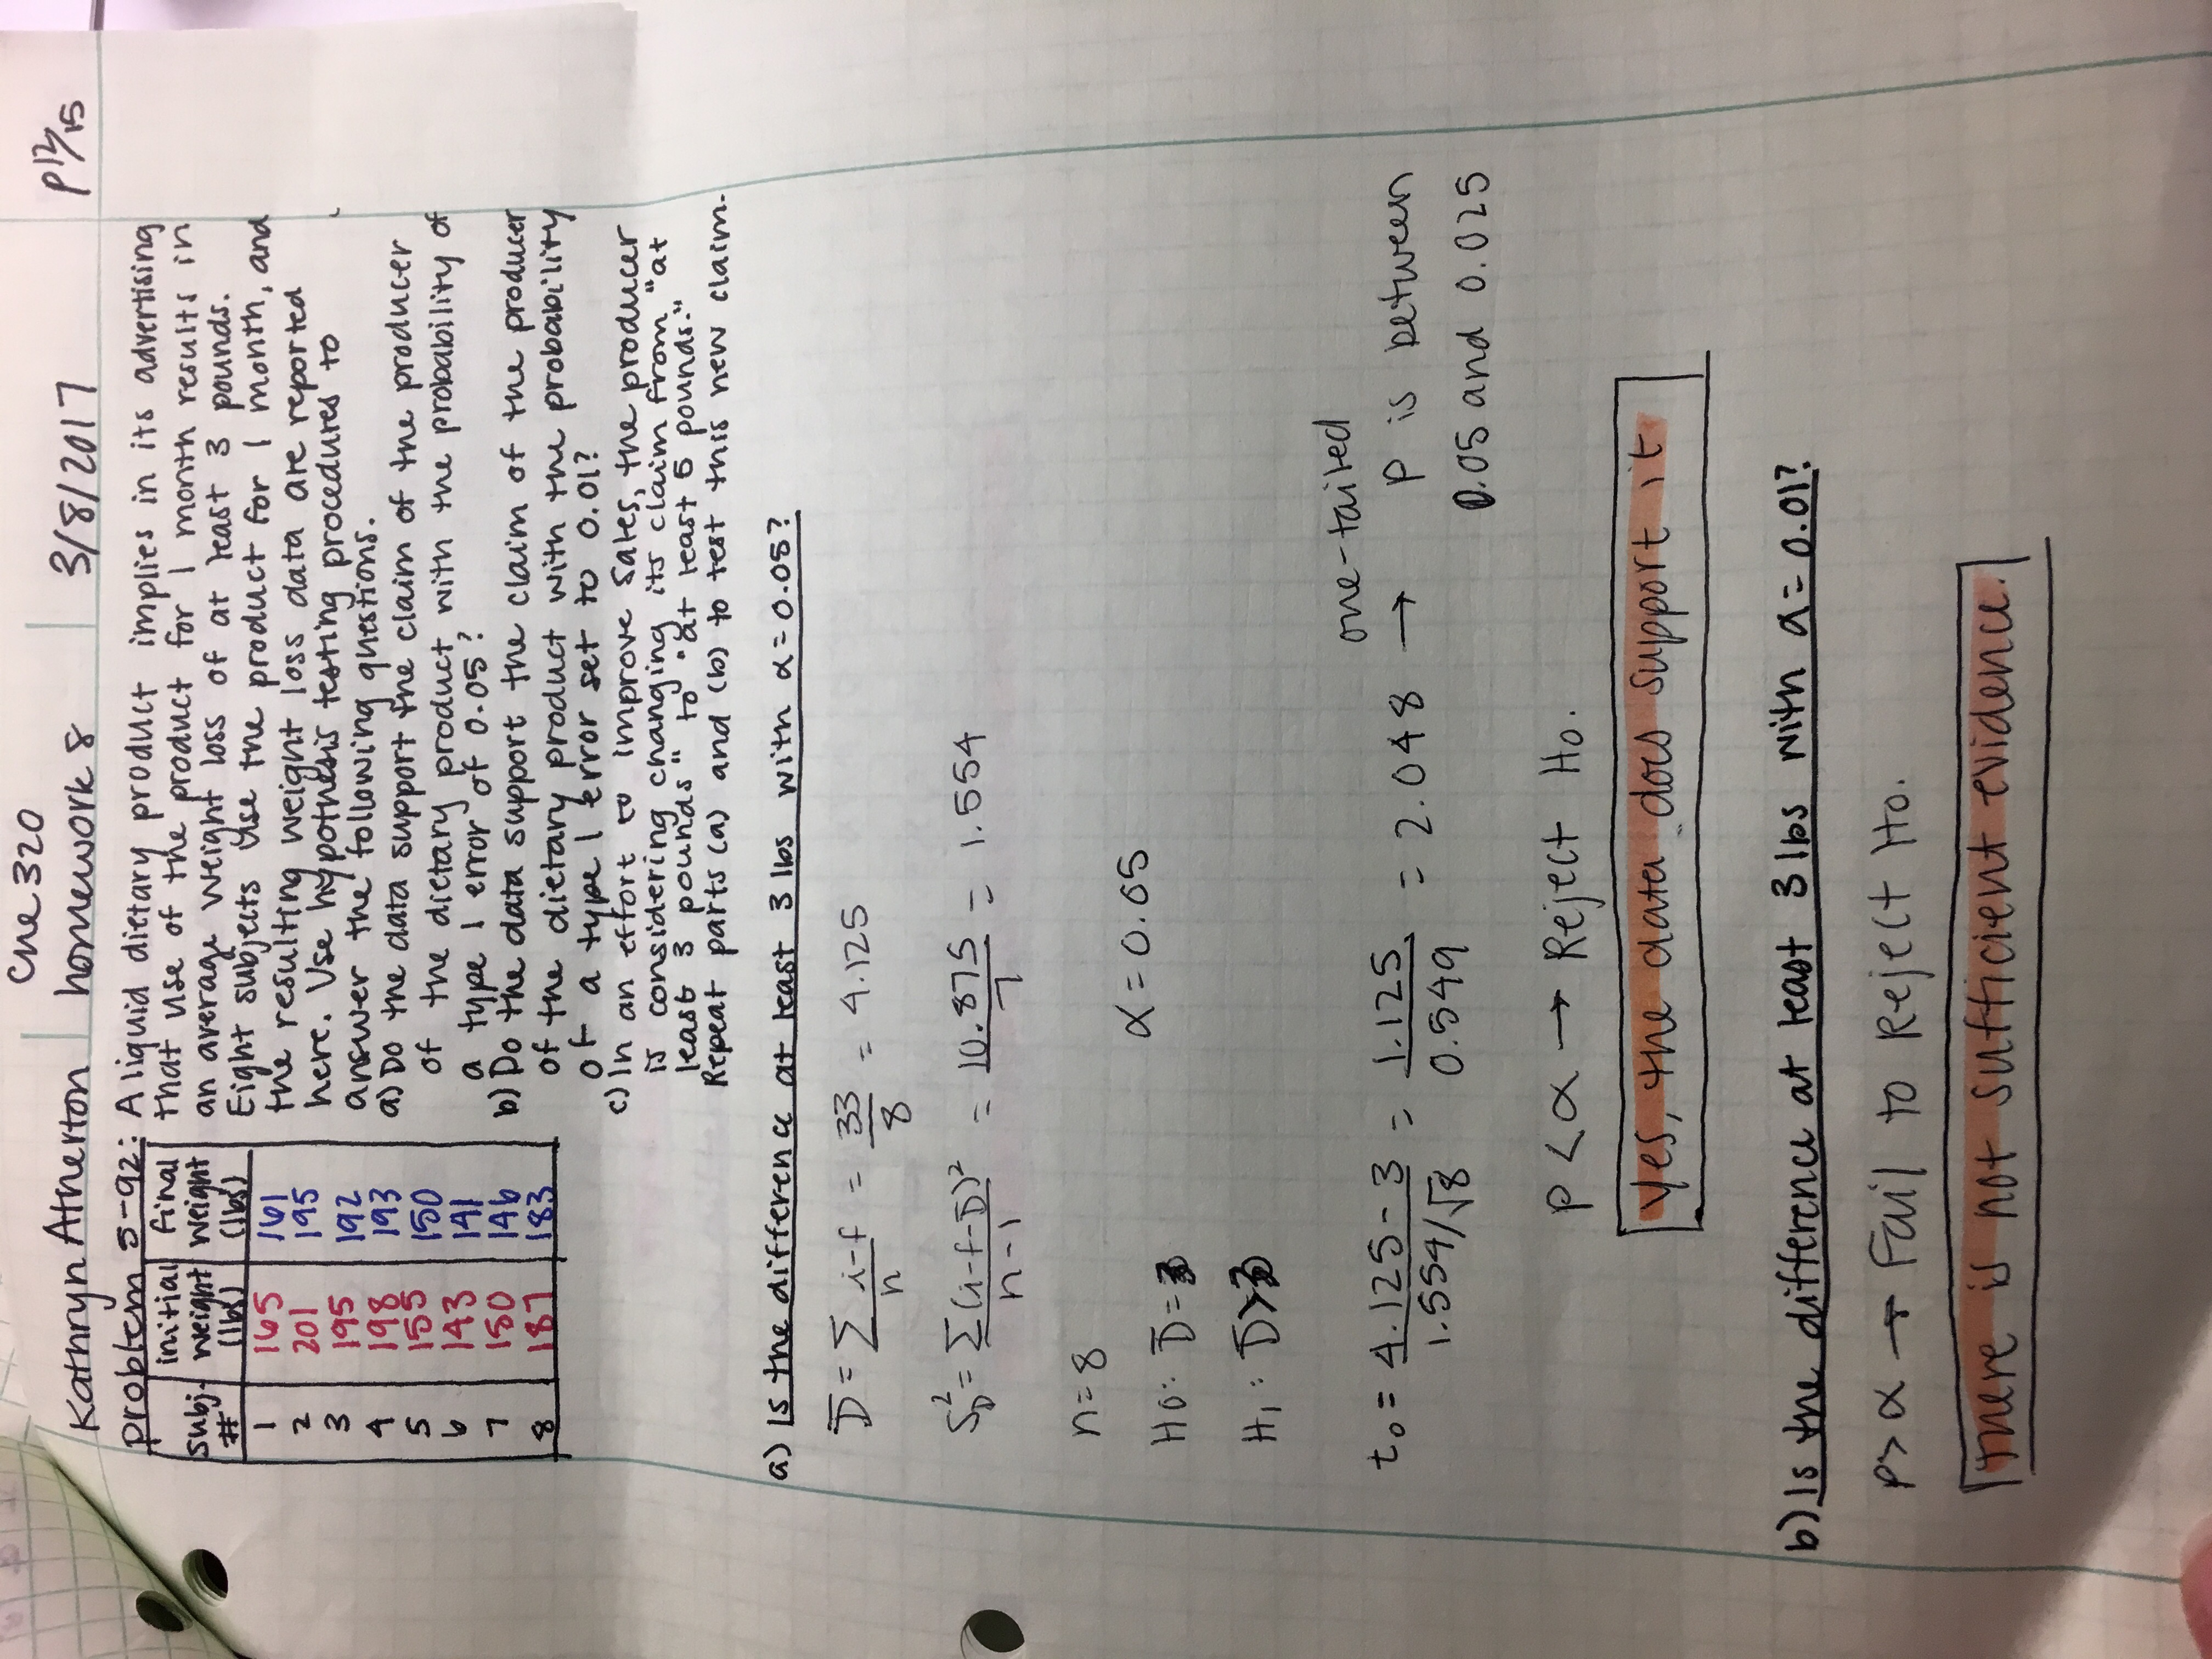 Che 320
Kathryn Atherton homework 8 3/8/2017 P12/15
problem 5-92: A liquid dietary product implies in its advertising
that use of the product for 1 month results in
an average weight loss of at least 3 pounds.
Eight subjects use the product for 1 month, and
the resulting weight loss data are reported
here. Use hypothesis testing procedures to
answer the following questions.
a) Do the data support the claim of the producer
of the dietary product with the probability of
a type 1 error of 0.05?
b) Do the data support the claim of the producer
of the dietary product with the probability
of a type 1 error set to 0.01?
c) In an effort to improve sales, the producer
is considering changing its claim from "at
least 3 pounds" to "at least 5 pounds."
Repeat parts (a) and (b) to test this new claim.
subj. # initial weight (lbs) final weight (lbs)
1 165 161
2 201 195
3 195 192
4 198 193
5 155 150
6 143 141
7 150 146
8 187 183
a) Is the difference at least 3 lbs with α = 0.05?
D̄ = Σ i-f / n = 33 / 8 = 4.125
S_D² = Σ(i-f-D̄)² / n-1 = 10.875 / 7 = 1.554
n = 8
α = 0.05
H0: D̄ = 3
H1: D̄ > 3
t0 = 4.125 - 3 / 1.554/√8 = 1.125 / 0.549 = 2.048 →
one-tailed
P is between
0.05 and 0.025
P < α → Reject H0.
Yes, the data does support it
b) Is the difference at least 3 lbs with α = 0.01?
P > α → Fail to Reject H0.
There is not sufficient evidence.